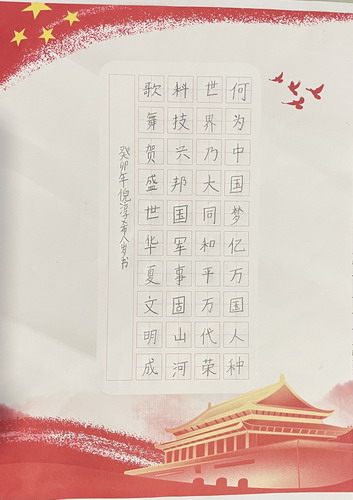 何为中国梦亿万国人种
世界乃大同和平万代荣
科技兴邦国军事固山河
歌舞贺盛世华夏文明成
癸卯年倪淳希八岁书